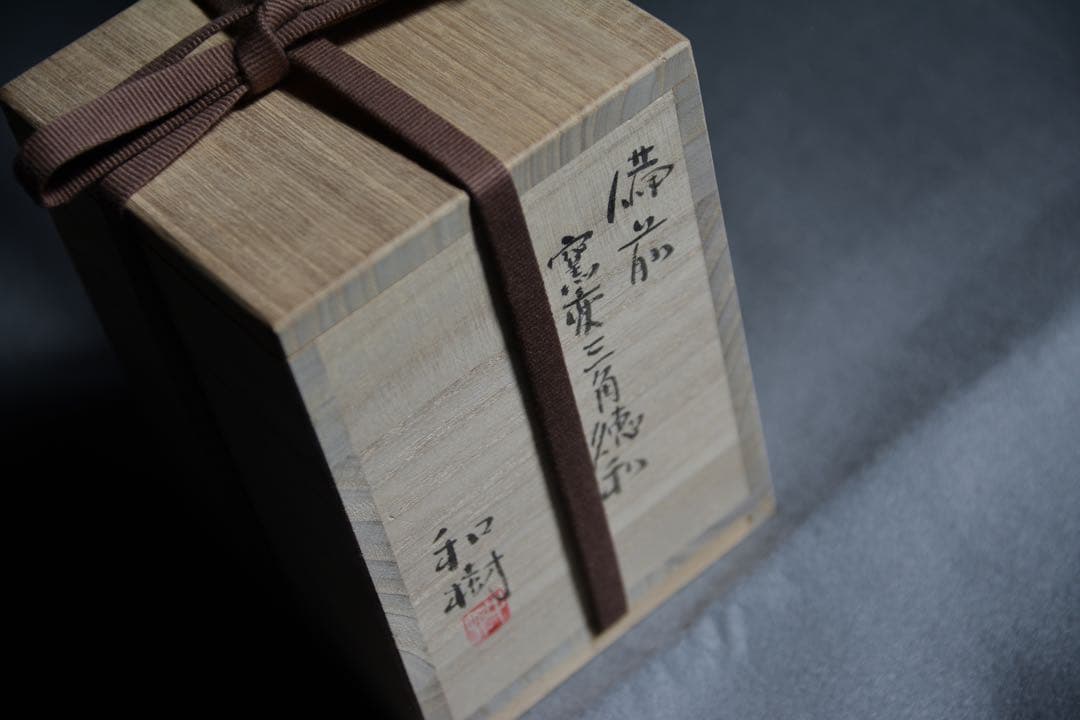 備前
窯変三角徳利
和樹